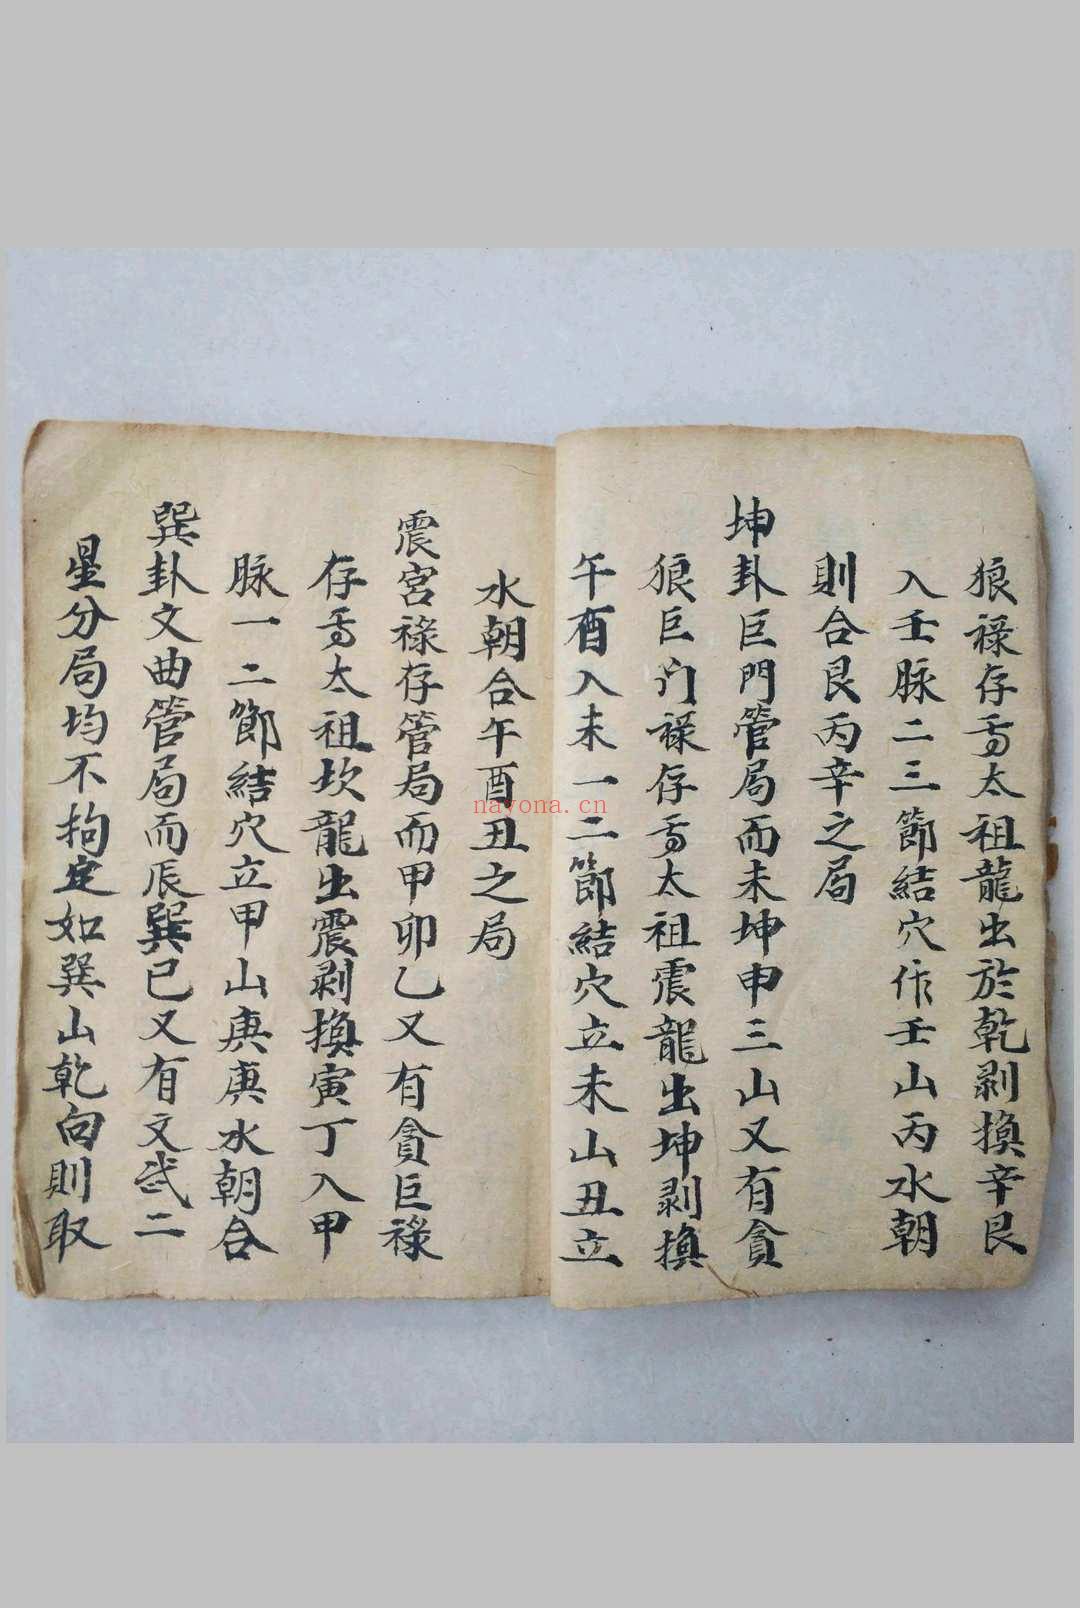 狼祿存為太祖龍出於乾剥換辛艮
入壬脉二三節結穴作壬山丙水朝
則合艮丙辛之局
坤卦巨門管局而未坤申三山又有貪
狼巨门祿存為太祖震龍出坤剥換
午酉入未一二節結穴立未山丑立
水朝合午酉丑之局
震宮祿存管局而甲卯乙又有貪巨祿
存為太祖坎龍出震剥換寅丁入甲
脉一二節結穴立甲山庚庚水朝合
巽卦文曲管局而辰巽巳又有文武二
星分局均不拘定如巽山乾向則取
nayona.cn